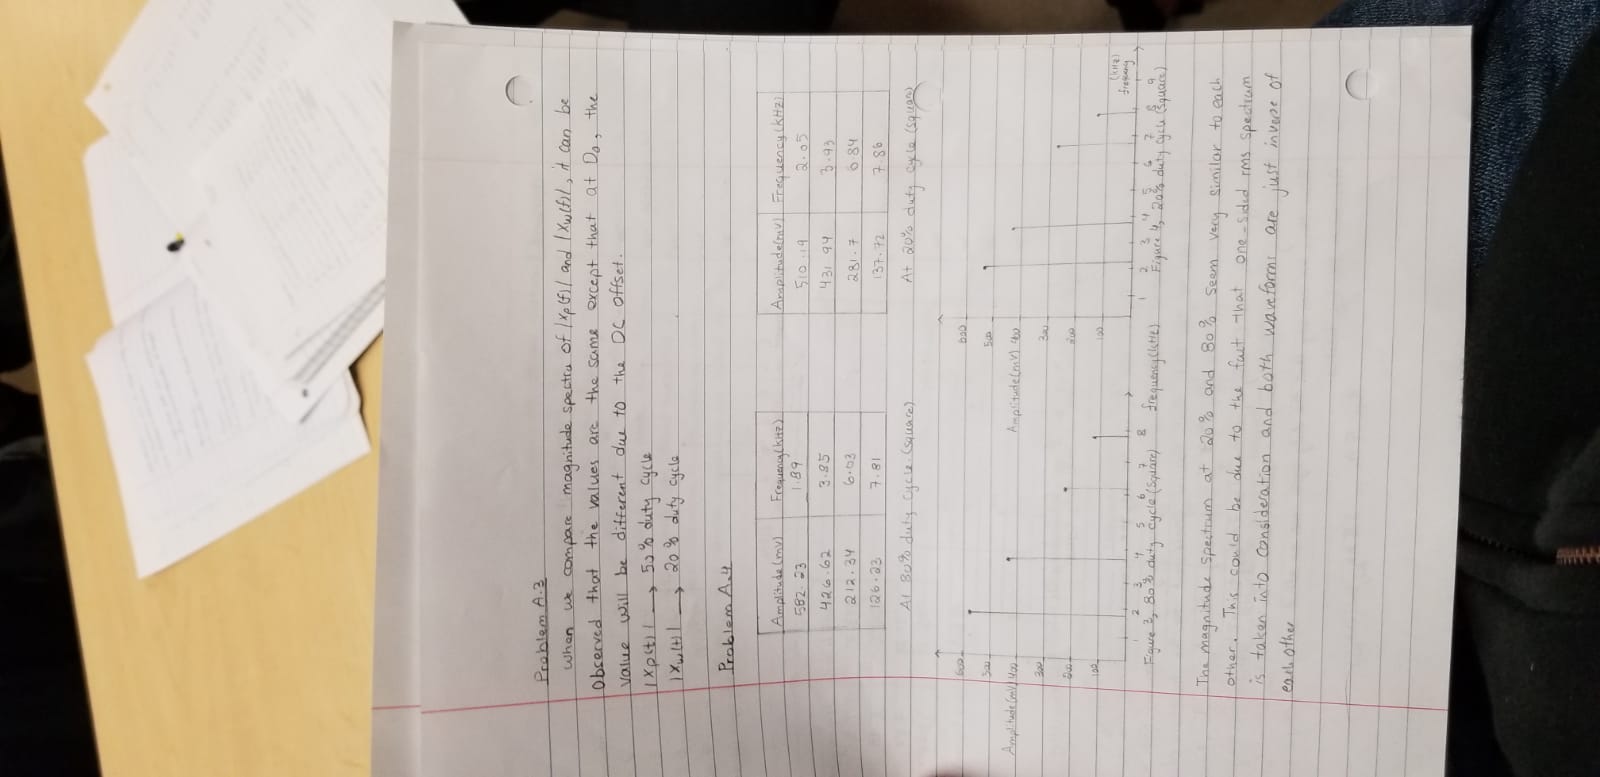 Problem A.3
When we compare magnitude spectra of |Xp(f)| and |Xw(f)|, it can be
observed that the values are the same except that at D₀, the
value will be different due to the DC offset.
|Xp(t)| → 50% duty cycle
|Xw(t)| → 20% duty cycle
Problem A.4
Amplitude(mV) Frequency(kHz)
582.23 1.89
426.62 3.85
212.34 6.03
126.23 7.81
At 80% duty cycle.(square)
Amplitude(mV) Frequency(kHz)
510.19 2.05
431.94 3.93
281.7 6.84
137.72 7.86
At 20% duty cycle (square)
600
500
Amplitude(mV) 400
300
200
100
1 2 3 4 5 6 7 8
Figure 3, 80% duty cycle (square) frequency(kHz)
600
500
Amplitude(mV) 400
300
200
100
(kHz)
frequency
1 2 3 4 5 6 7 8 9
Figure 4, 20% duty cycle (square)
The magnitude spectrum at 20% and 80% seem very similar to each
other. This could be due to the fact that one-sided rms spectrum
is taken into consideration and both waveforms are just inverse of
each other